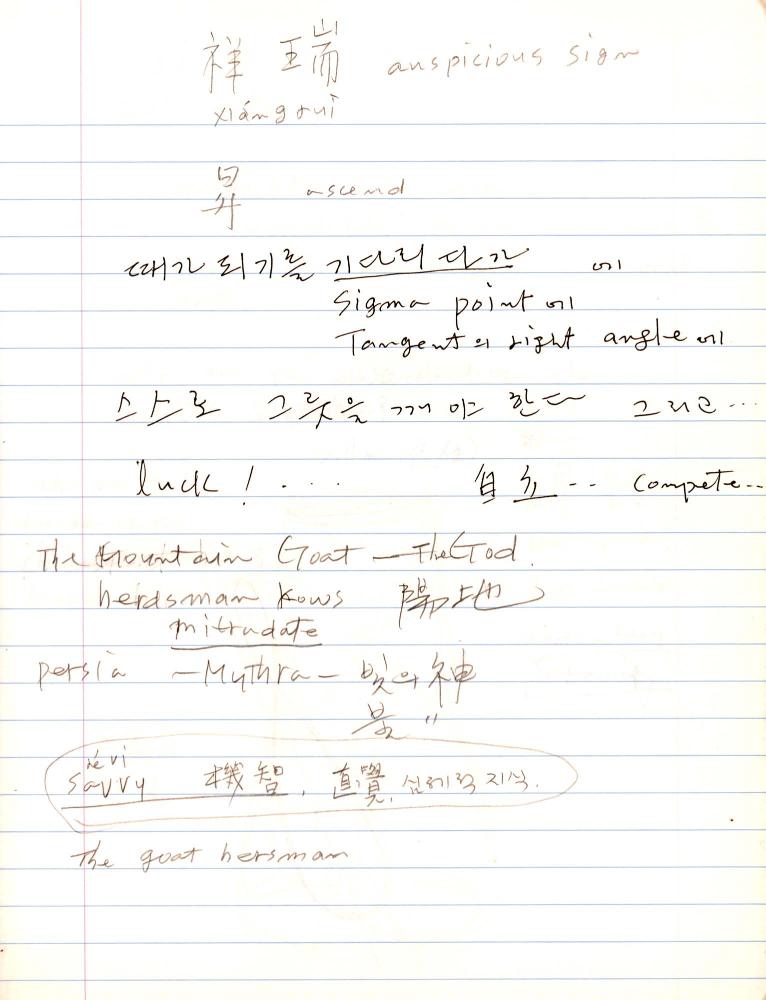 祥瑞 auspicious sign
xiángruì
昇 ascend
때가 되기를 기다리다가 에
Sigma point 에
Tangent의 right angle에
스스로 그릇을 깨야 한다 그리고...
luck! ....
自 .. compete..
The Mountain Goat — The God.
herdsman kows 陽地
mitradate
persia — Mythra — 빛의 神
불 "
sévi
savvy 機智, 直覺, 지식.
The goat hersman